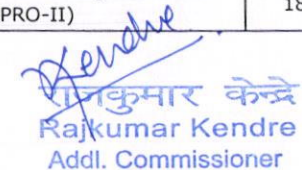 PRO-II) 18
Kendre
राजकुमार केन्द्रे
Rajkumar Kendre
Addl. Commissioner